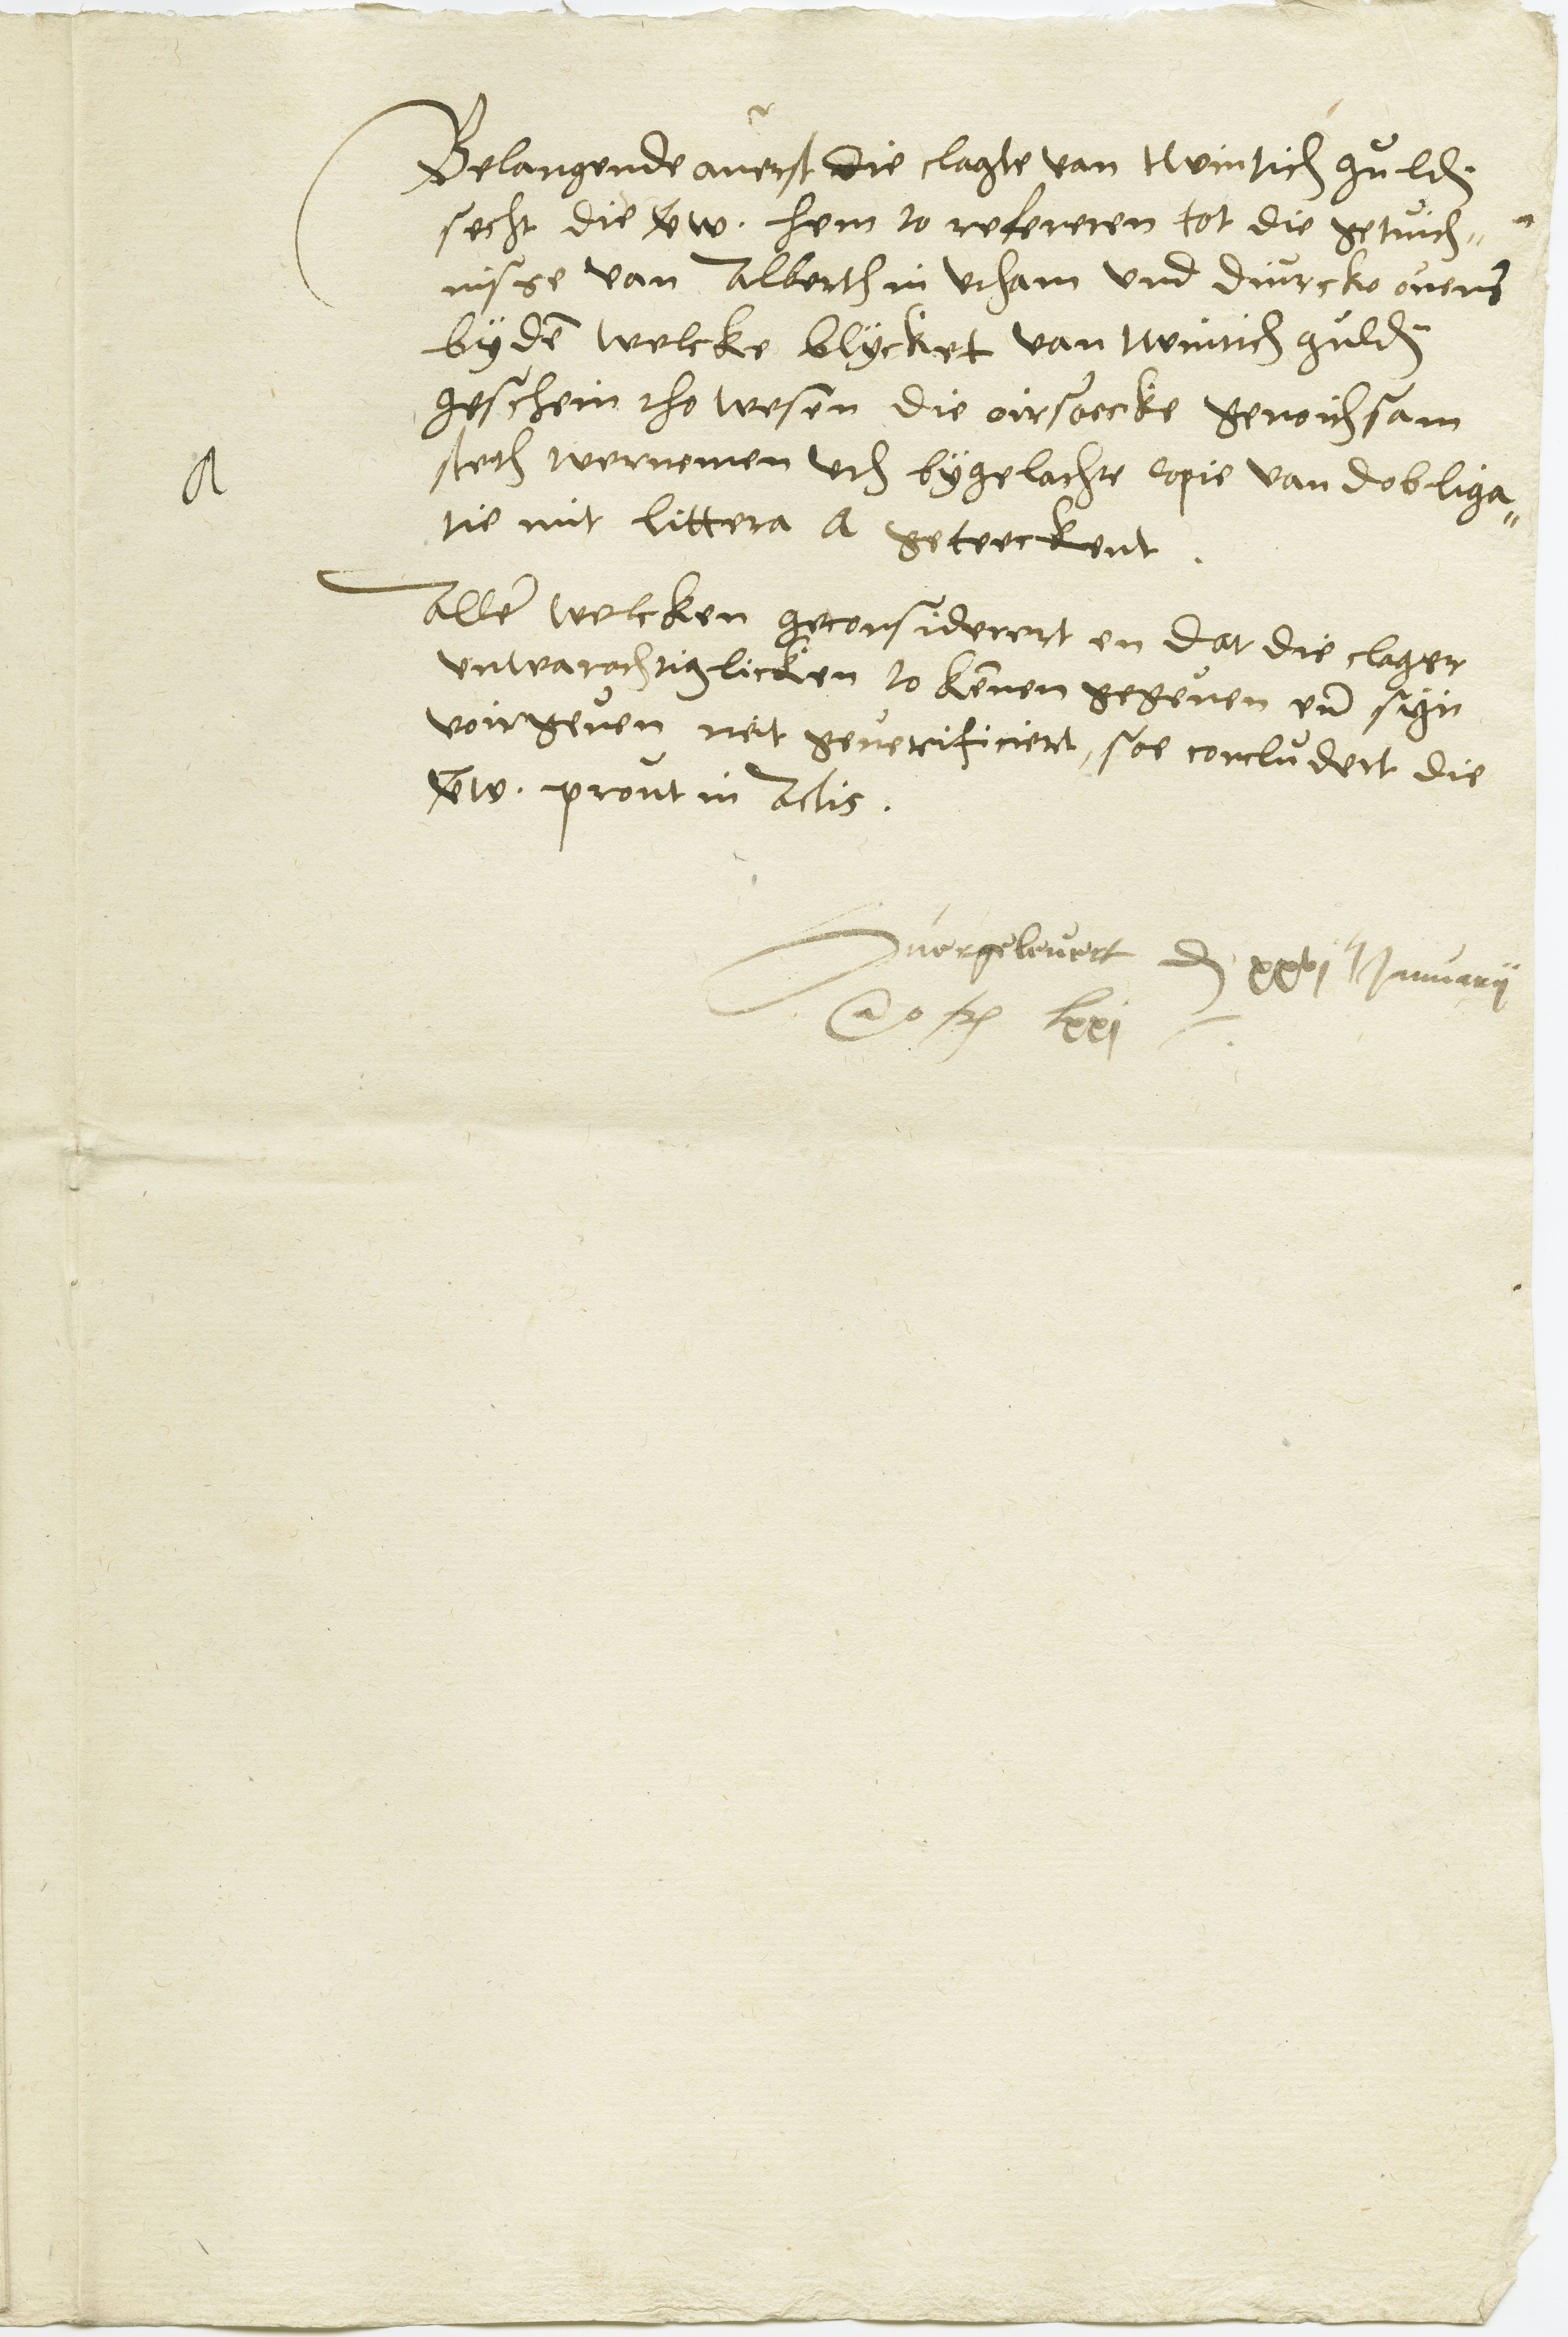 Belangende auerst die clagte van twintich guldn
secht die vw. hem to refereren tot die getuich„
nisse van Alberth in Ucham und Diurcko ouens
byden welcke blycket van twintich guldn
geschein tho wesen die oirsaecke genoichsam
steth vernemen uth bygelachte copie van dobliga„
A
tie mit littera A geteeckent.
Aller welcken geconsiderert en dat die clager
unwarachtiglicken to kennen gegeuen und syn
voirgeuen neit geverificiert, soe concludert die
vw. prout in Actis.
Ouergeleuert d xxvi January
Ao lxxi